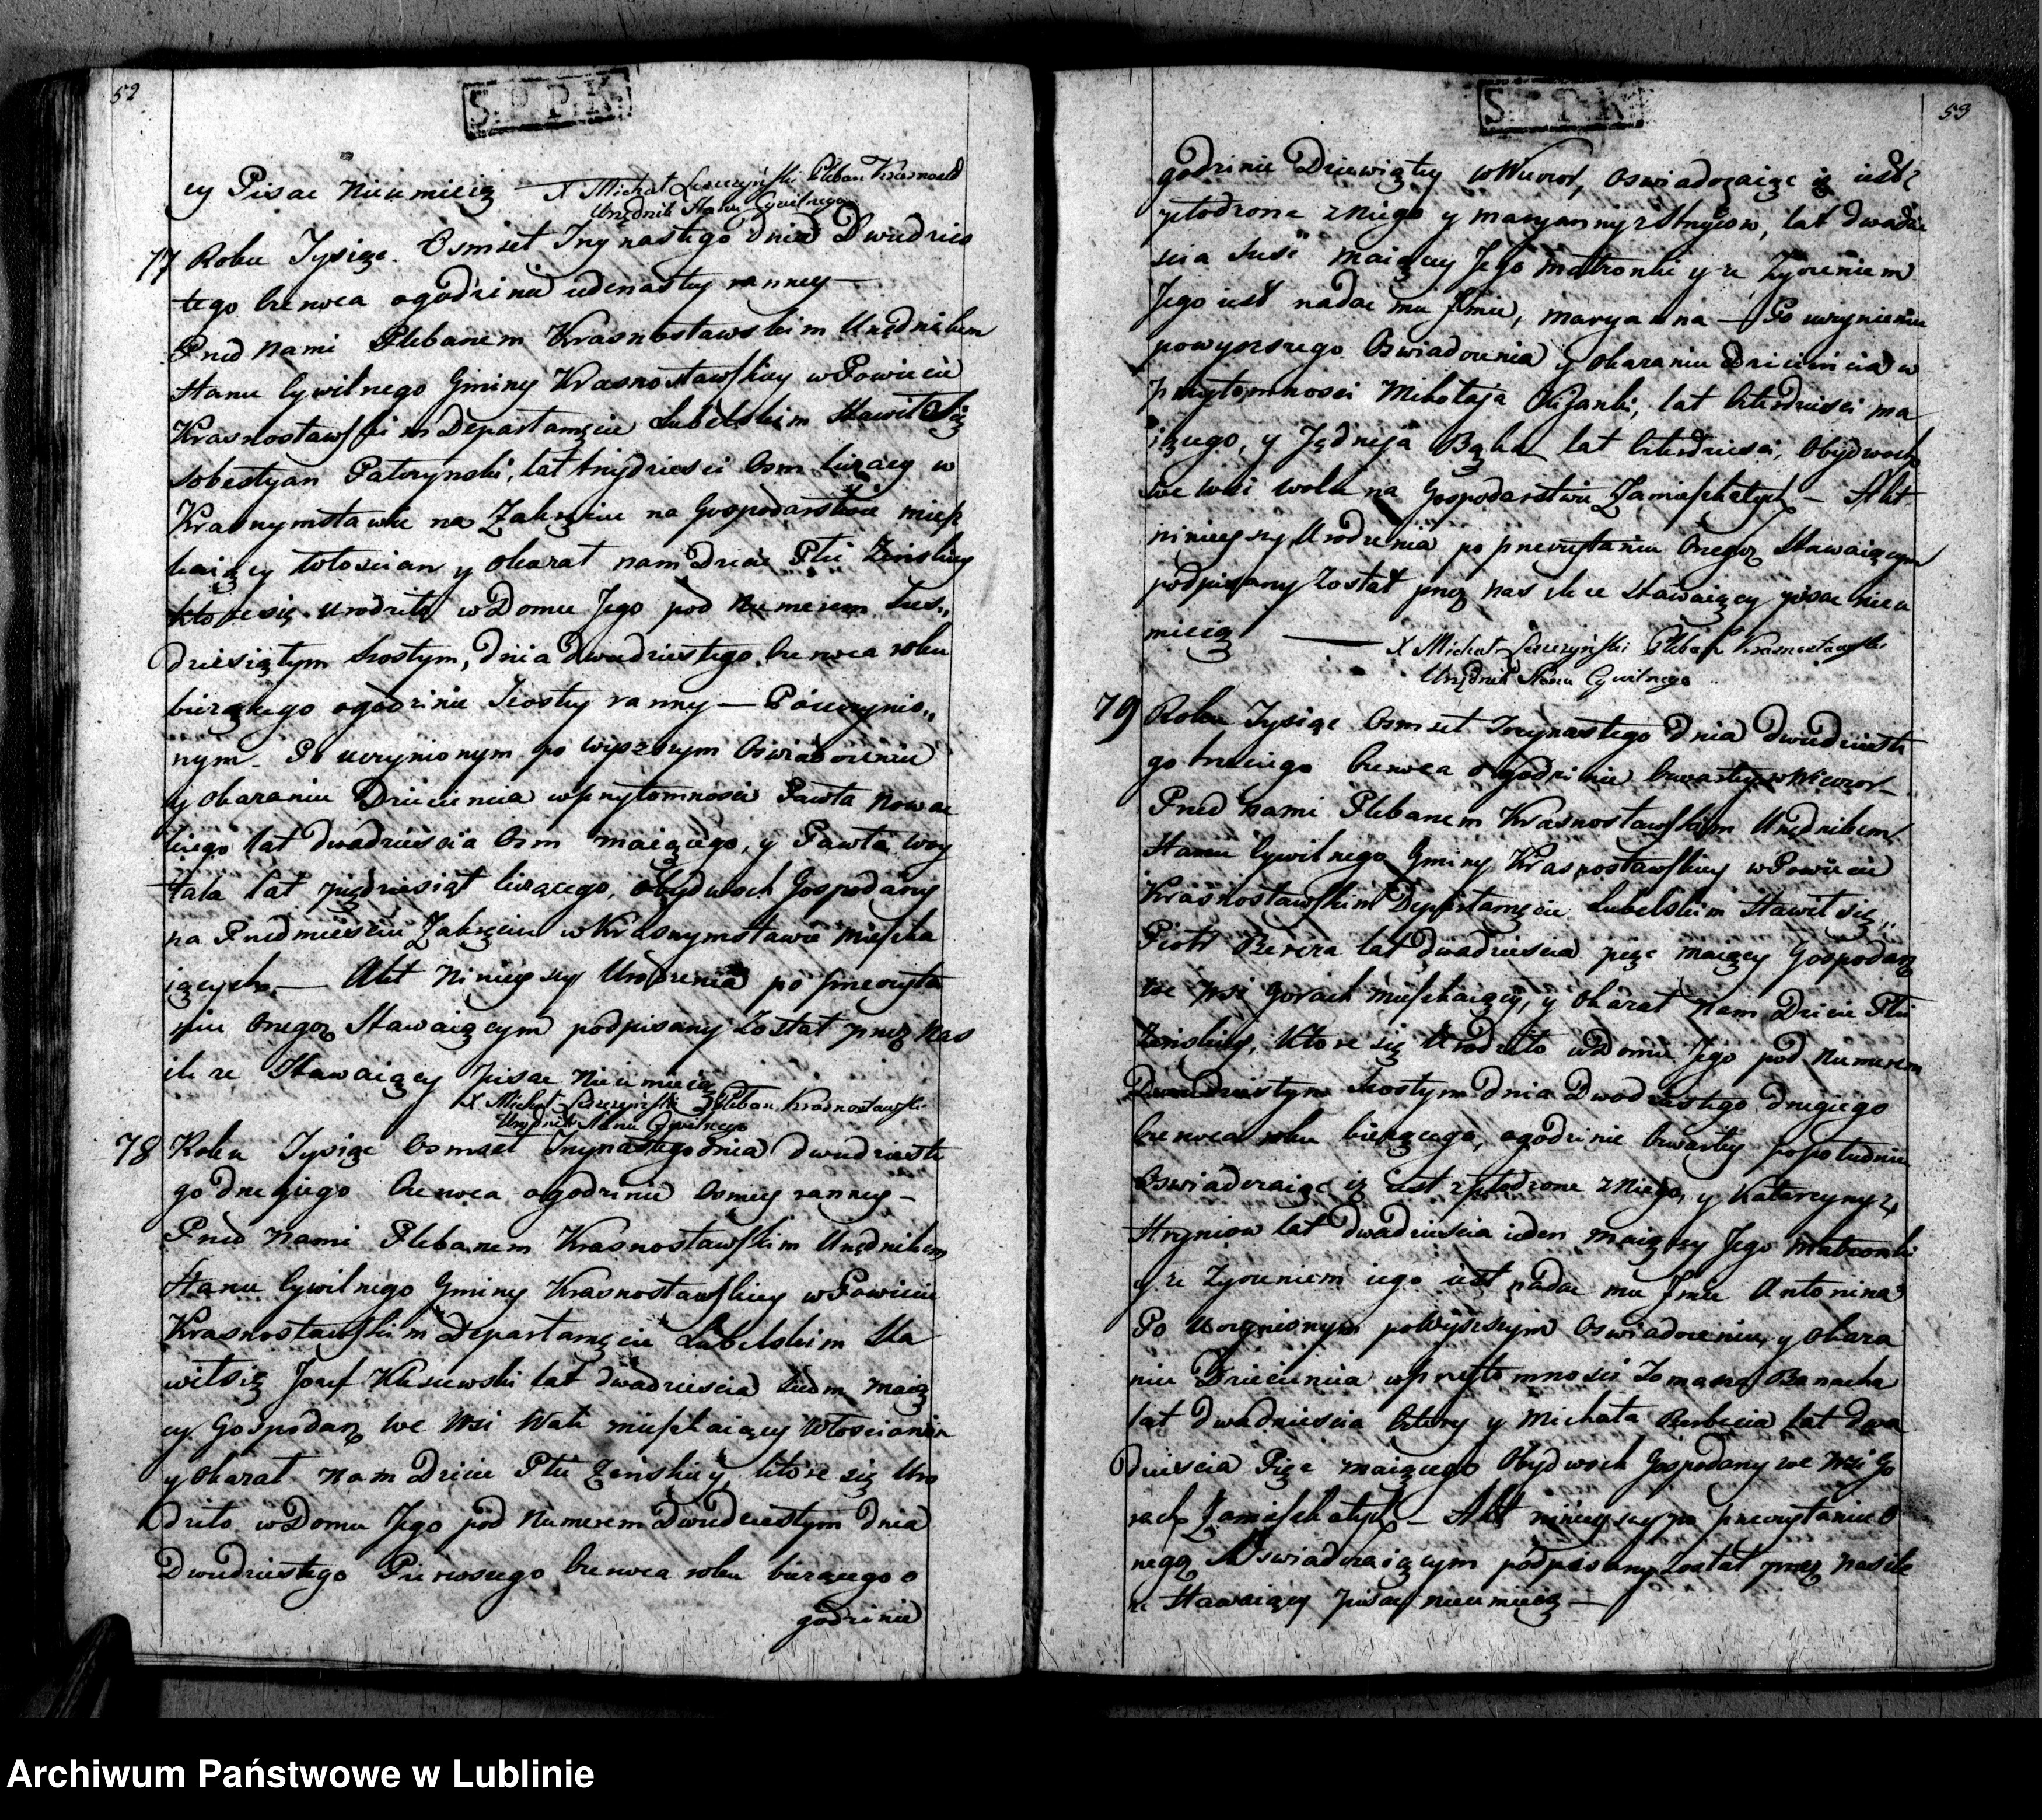 52
S.P.P.K.
cy Pisac nieumieią — X Michał Pleban Krasnost
Urzędnik Stanu Cywilnego
77 Roku Tysiąc Osmset Trzynastego dnia Dwudzies
tego Czerwca o godzinie iedenastey ranney —
Przed Nami Plebanem Krasnostawskim Urzędnikem
Stanu Cywilnego Gminy Krasnostawskiey w Powiecie
Krasnostawskim Departamęcie Lubelskim Stawił się
Sobestyan Patorynski, lat trzydziesci Osm liczący w
Krasnymstawie na Zakręciu na Gospodarstwie miesz
kaiący Włoscian y okazał nam Dziecie Płci Zenskiey
ktore się urodziło w Domu Jego pod Numerem Szes„
dziesiątym Szostym, dnia dwudziestego Czerwca roku
bieżącego o godzinie Szostey ranny — Pouczynio„
nym. Po uczynionym po wyższym Oswiadczeniu
y okazaniu Dziecięcia w przytomnosci Pawła Nowac
kiego lat dwadziescia Osm maiącego, y Pawła Woy
tala lat piędziesiąt liczącego, obydwoch Gospodarzy
na Przedmiesciu Zakręciu w Krasnymstawie mieszka
iących. — Akt Ninieyszy Urodzenia po przeczyta
niu Onegoż Stawaiącym podpisany został przez Nas
ile ze Stawaiący pisac nieumieią
X Michał Pleban Krasnostawski
Urzędnik Stanu Cywilnego
78 Roku Tysiąc Osmset Trzynastego dnia dwudzieste
go drugiego Czerwca o godzinie Osmey ranney —
Przed Nami Plebanem Krasnostawskim Urzędnikem
Stanu Cywilnego Gminy Krasnostawskiey w Powiecie
Krasnostawskim Departamęcie Lubelskim Sta
wił się Jozef Klisiewski lat dwadziescia siedm maią
cy Gospodarz we Wsi Wali mieszkaiący Włoscianin
y okazał Nam Dziecie Płci Zenskiey, ktore się Uro
dziło w Domu Jego pod Numerem Dwudziestym dnia
Dwudziestego Pierwszego Czerwca roku bieżącego o
godzinie
53
S.P.P.K.
godzinie Dziewiątey w Wieczor, oswiadczaiąc iż iest
zpłodzone z Niego y maryanny z lat dwadzie
scia szesc maiącey Jego małżonki y ze Zyczeniem
Jego iest nadac mu Jmie, maryanna — Po uczynieniu
powyższego Oswiadczenia y okazaniu Dziecięcia w
przytomnosci Mikołaja lat Czterdziesci ma
iącego, y Jędrzeja Bąka lat Czterdziesci, Obydwoch
we Wsi Wolce na Gospodarstwie Zamieszkałych — Akt
ninieyszy Urodzenia po przeczytaniu Onegoż Stawaiącym
podpisany został przez nas ile ze Stawaiący pisac nieu
mieią — X Michał Pleban Krasnostawski
Urzędnik Stanu Cywilnego
79 Roku Tysiąc Osmset Trzynastego Dnia dwudzieste
go trzeciego Czerwca o godzinie Czwartey w Wieczor —
Przed Nami Plebanem Krasnostawskim Urzędnikem
Stanu Cywilnego Gminy Krasnostawskiey w Powiecie
Krasnostawskim Departamęcie Lubelskim Stawił się„
Piotr Bereza lat dwadziescia pięc maiący Gospodarz
we wsi Gorach mieszkaiący, y okazał Nam Dziecie Płci
Zenskiey, Ktore się Urodziło w Domu Jego pod Numerem
Dwudziestym Szostym Dnia Dwudziestego drugiego
Czerwca roku bieżącego, o godzinie Czwartey popołudniu
Oswiadczaiąc iż iest zpłodzone z Niego, y Katarzyny z
Hryniow lat dwadziescia ieden maiącey Jego małżonki
y ze Zyczeniem iego iest nadac mu Jmie Antonina
Po uczynionym powyższym Oswiadczeniu, y okaza
niu Dziecięcia w przytomnosci Tomasza Banacha
lat dwadziescia Cztery y Michała Berbecia lat dwa
dziescia Pięc maiącego Obydwoch Gospodarzy we Wsi Go
rach Zamieszkałych — Akt ninieyszy po przeczytaniu O
negoż Oswiadczaiącym podpisany został przez nas ile
ze Stawaiący pisac nieumieią —
Archiwum Państwowe w Lublinie